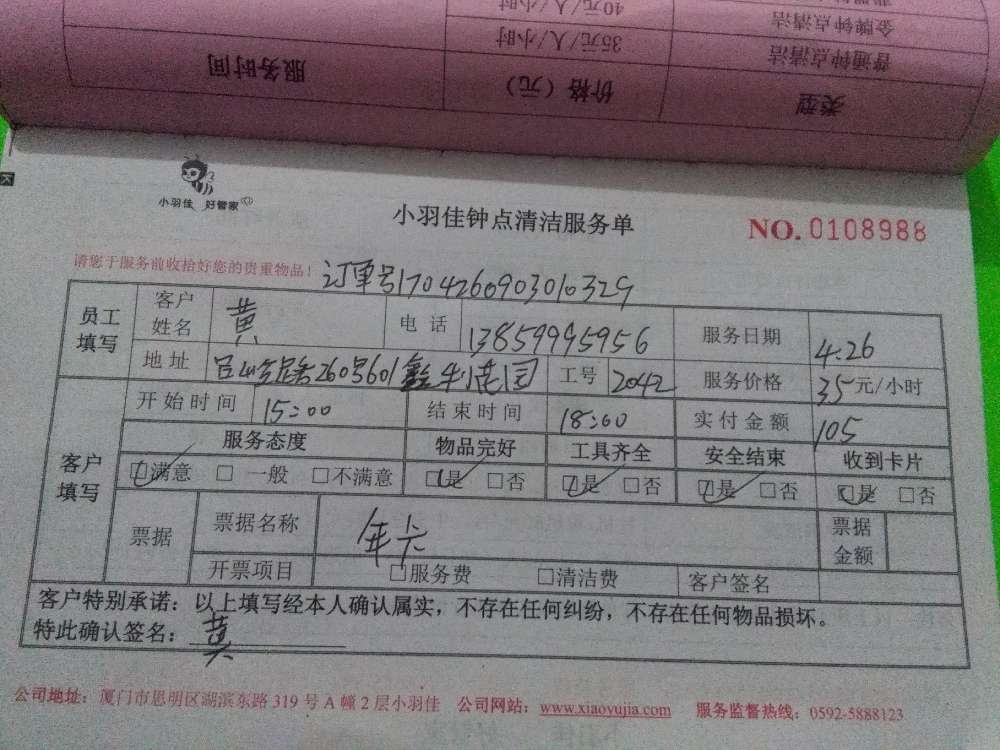 40元/人/小时
金牌钟点清洁
35元/人/小时
普通钟点清洁
服务时间
价格（元）
类型
小羽佳 好管家
小羽佳钟点清洁服务单
NO. 0108988
请您于服务前收拾好您的贵重物品！
订单号1704260903010329
员工填写
客户姓名 黄 电话 13859995956 服务日期 4.26
地址 260号601 工号 2042 服务价格 35元/小时
客户填写
开始时间 15:00 结束时间 18:00 实付金额 105
服务态度 物品完好 工具齐全 安全结束 收到卡片
☑满意 □一般 □不满意 ☑是 □否 ☑是 □否 ☑是 □否 ☑是 □否
票据 票据名称 年卡 票据金额
开票项目 □服务费 □清洁费 客户签名
客户特别承诺：以上填写经本人确认属实，不存在任何纠纷，不存在任何物品损坏。
特此确认签名：黄
公司地址：厦门市思明区湖滨东路319号A幢2层小羽佳 公司网站：www.xiaoyujia.com 服务监督热线：0592-5888123